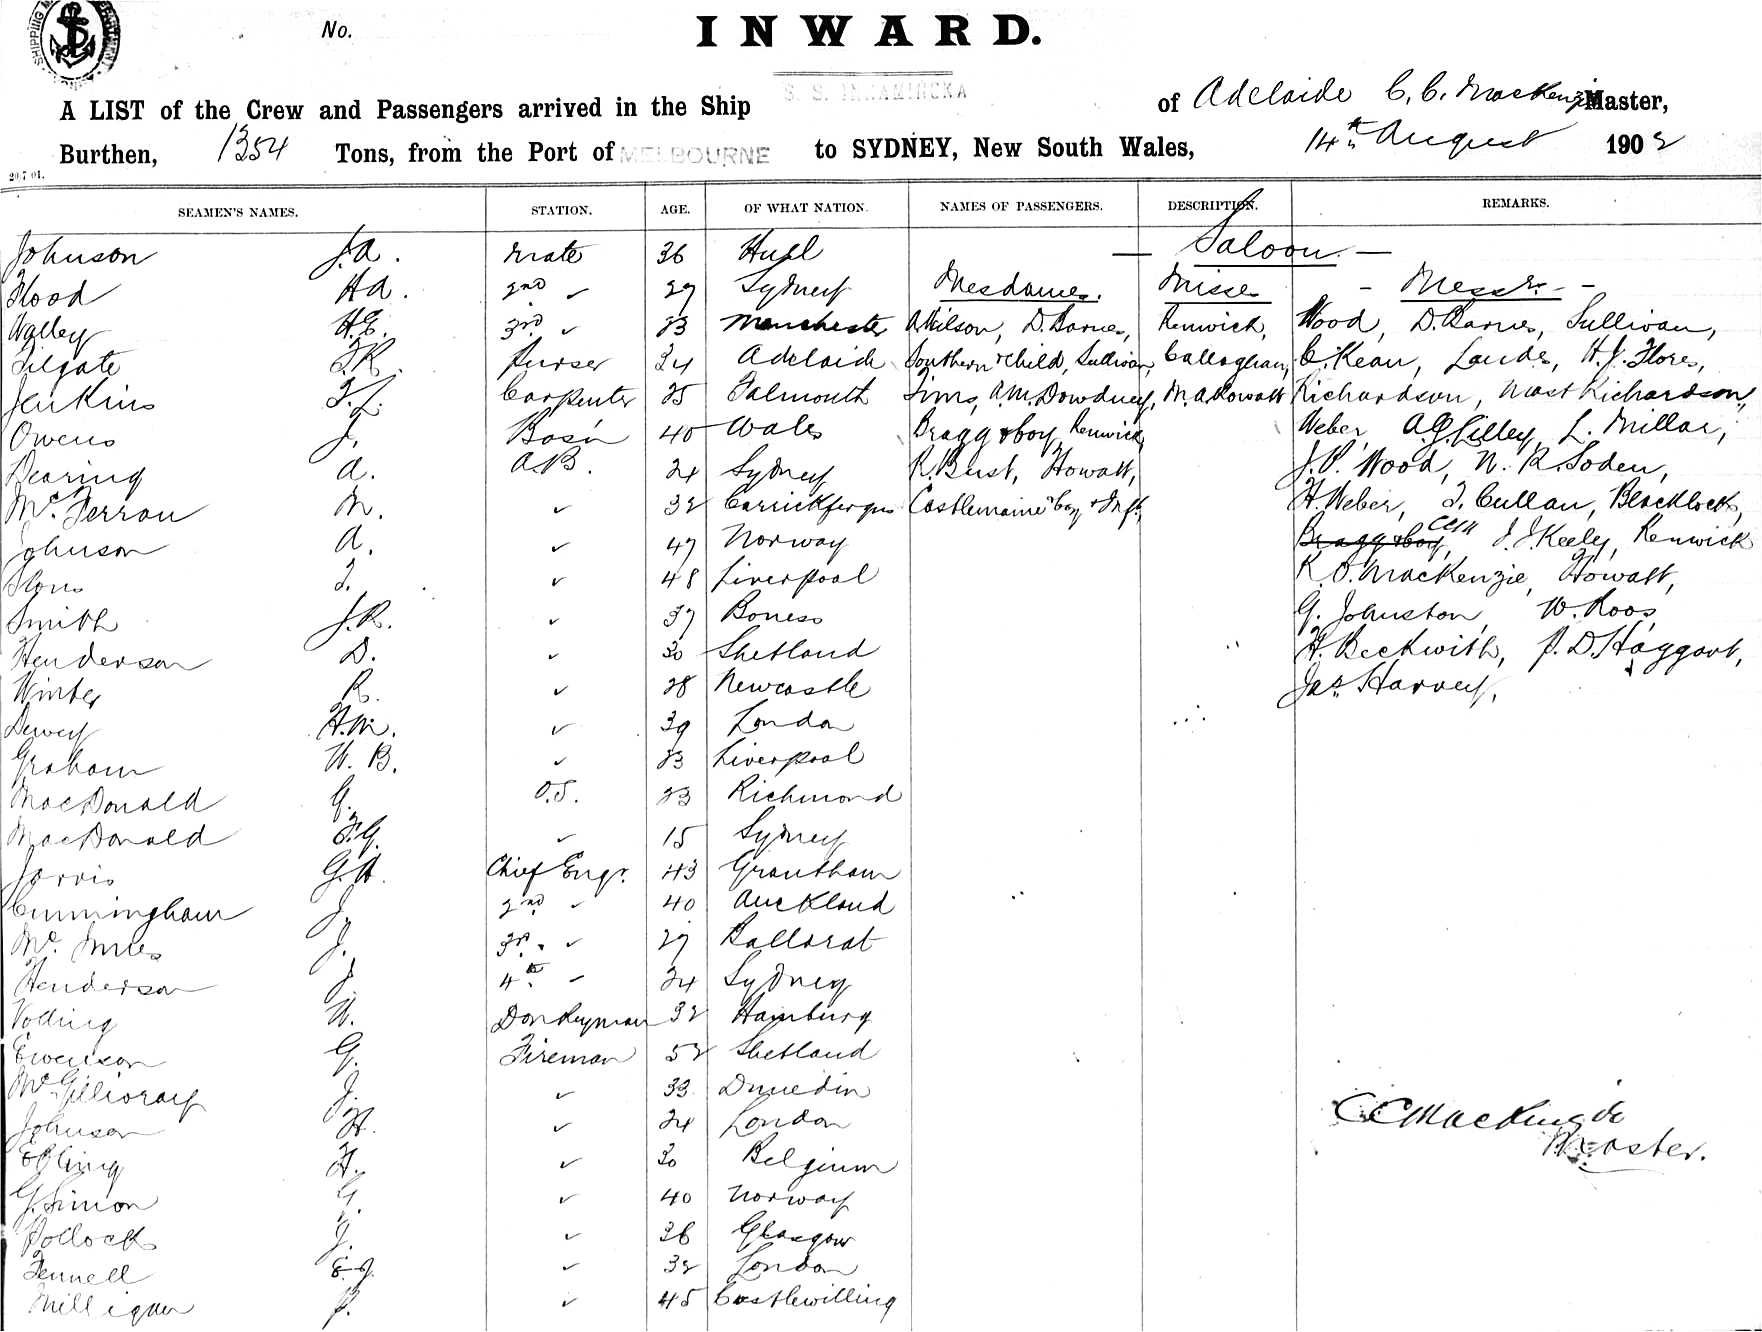 No.
INWARD.
S. S. INNAMINCKA
A LIST of the Crew and Passengers arrived in the Ship of Adelaide C. C. MacKenzie Master,
Burthen, 1354 Tons, from the Port of MELBOURNE to SYDNEY, New South Wales, 14th August 1902
20.7.01.
SEAMEN'S NAMES. STATION. AGE. OF WHAT NATION. NAMES OF PASSENGERS. DESCRIPTION. REMARKS.
Johnson J.A. Mate 36 Hull — Saloon. —
Flood H A. 2nd ✓ 29 Sydney Mesdames. Misses - Messrs. -
Walley H.E. 3rd ✓ 23 Manchester A Wilson, D. Barnes, Renwick, Wood, D. Barnes, Sullivan,
Filgate F.R. Purser 34 Adelaide Southern & Child, Sullivan, Callaghan, C. Kean, Lands, H. J. Flores,
Jenkins F.L. Carpenter 25 Falmouth Tims, A.M. Dowdney, M. A. Rowatt Richardson, Mast Richardson,
Owens J. Bosn 40 Wales Bragg & boy, Renwick, Weber, A. G. Lilley, L. Millar,
Dearing A. A.B. 24 Sydney R. Bust, Howatt, J. P. Wood, N. R. Soden,
Mc. Ferran N. ✓ 32 Carrickfergus Castlemaine boy & Inft, H. Weber, F. Cullan, Blacklock,
Johnson A. ✓ 47 Norway Bragg & boy, J. J. Keeley, Renwick
F. ✓ 48 Liverpool R. D. MacKenzie, Howatt,
Smith J.R. ✓ 37 Boness G. Johnston, W. Roos,
Henderson D. ✓ 30 Shetland H. Beckwith, P. D. Haggart,
Winter R. ✓ 28 Newcastle Jas. Harvey,
Dewey H.M. ✓ 39 London
Graham W. B. ✓ 23 Liverpool
MacDonald G. O.S. 23 Richmond
MacDonald F.G. ✓ 15 Sydney
Jarvis G.H. Chief Engr. 43 Grantham
Cunningham J. 2nd ✓ 40 Auckland
Mc. Innes J. 3rd. ✓ 29 Ballarat
Henderson J. 4th - 24 Sydney
Volling W. Donkeyman 32 Hamburg
Ewenson G. Fireman 52 Shetland
Mc. Gillivray J. ✓ 33 Dunedin
Johnson H. ✓ 24 London C C MacKenzie
Ebling H. ✓ 30 Belgium Master.
G. Simon G. ✓ 40 Norway
Pollock J. ✓ 36 Glasgow
Fennell E.J. ✓ 32 London
Milligan P. ✓ 45 Castlewilling